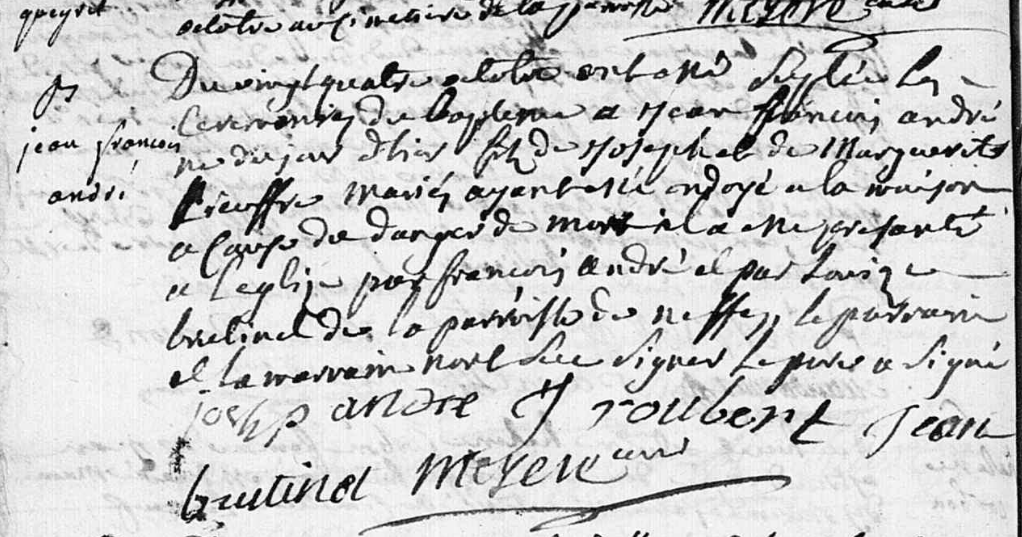 queyret
octobre au Cimetiere de la parroisse Meyere curé
jean françois
andré
Du vingt quatre octobre ont été supléé les
Ceremonies du bapteme a Jean françois andré
né du jour d'hier fils de Joseph et de Marguerite
Rieuffre mariés ayant été ondoyé a la maison
a Cause du danger de mort il a été presenté
a leglise par françois andré et par Louise
brutinel de la parroisse de neffes le parrain
et la marraine n'ont sceu signer le pere a signé
joseph andre J roubent Jean
brutinel Meyere curé